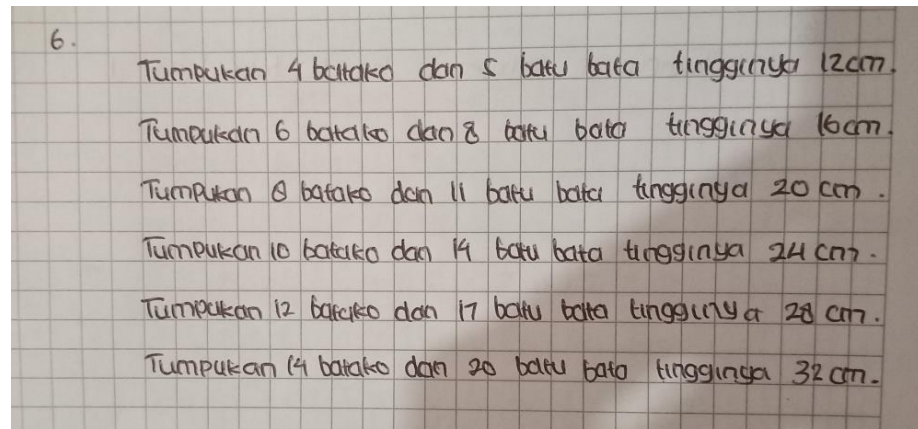 6.
Tumpukan 4 batako dan 5 batu bata tingginya 12cm.
Tumpukan 6 batako dan 8 batu bata tingginya 16cm.
Tumpukan 8 batako dan 11 batu bata tingginya 20 cm.
Tumpukan 10 batako dan 14 batu bata tingginya 24 cm.
Tumpukan 12 batako dan 17 batu bata tingginya 28 cm.
Tumpukan 14 batako dan 20 batu bata tingginya 32 cm.